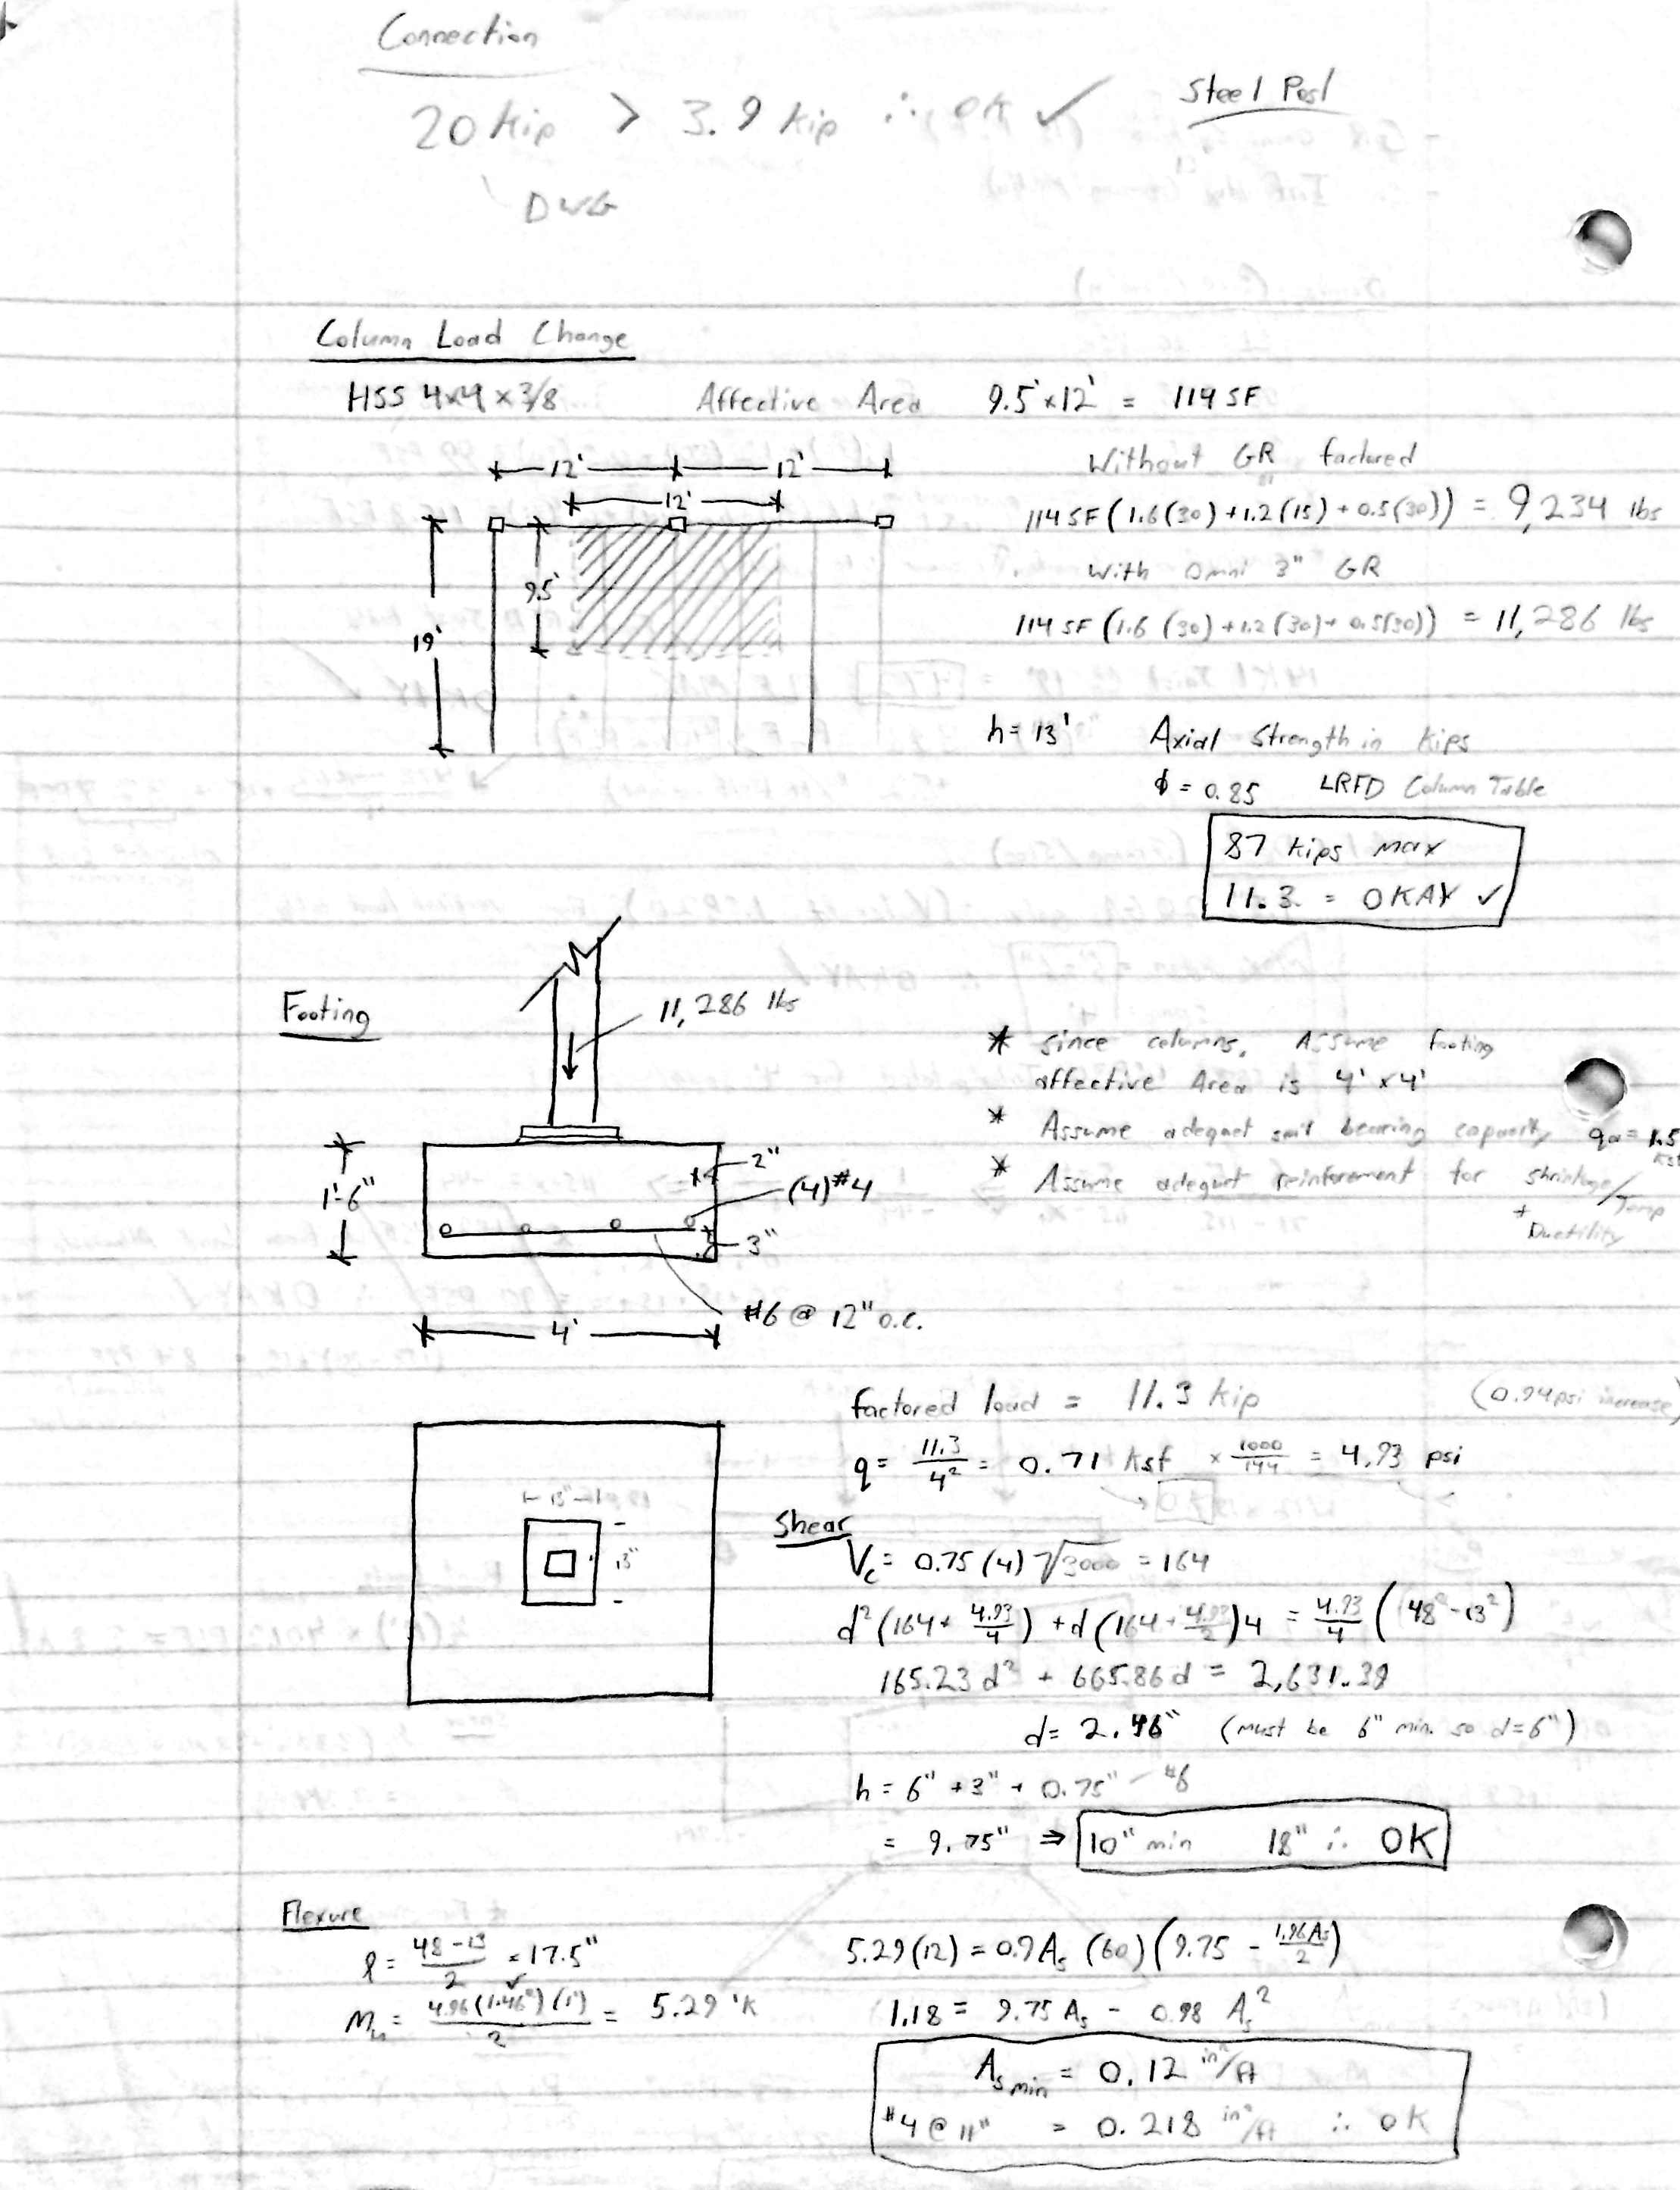 Connection
20 kip > 3.9 kip ∴ OK ✓
DWG
Steel Post
Column Load Change
HSS 4x4 x 3/8 Affective Area 9.5' x 12' = 114 SF
12' 12'
12'
9.5'
19'
Without GR factored
114 SF (1.6(30) + 1.2(15) + 0.5(30)) = 9,234 lbs
With Omni 3" GR
114 SF (1.6 (30) + 1.2(30) + 0.5(30)) = 11,286 lbs
h = 13' Axial Strength in Kips
ϕ = 0.85 LRFD Column Table
87 kips max
11.3 = OKAY ✓
Footing
11,286 lbs
1'-6"
2"
(4) #4
3"
#6 @ 12" o.c.
4'
* since columns, Assume footing
affective Area is 4' x 4'
* Assume adequet soil bearing capacity qa = 1.5
ksf
* Assume adequet reinforcement for shrinkage/Temp
+ Ductility
factored load = 11.3 kip (0.94psi increase)
q = 11.3/4² = 0.71 ksf x 1000/144 = 4.93 psi
13"
13"
Shear
Vc = 0.75 (4) √3000 = 164
d² (164 + 4.93/4) + d (164 + 4.93/2) 4 = 4.93/4 (48² - 13²)
165.23 d² + 665.86 d = 2,631.39
d = 2.46" (must be 6" min. so d = 6")
h = 6" + 3" + 0.75" - #6
= 9.75" ⇒ 10" min 18" ∴ OK
Flexure
l = 48-13/2 = 17.5"
Mu = 4.96 (1.46²) (1')/2 = 5.29 'k
5.29 (12) = 0.9 As (60) (9.75 - 1.96 As/2)
1.18 = 9.75 As - 0.98 As²
As min = 0.12 in²/ft
#4 @ 11" = 0.218 in²/ft ∴ OK